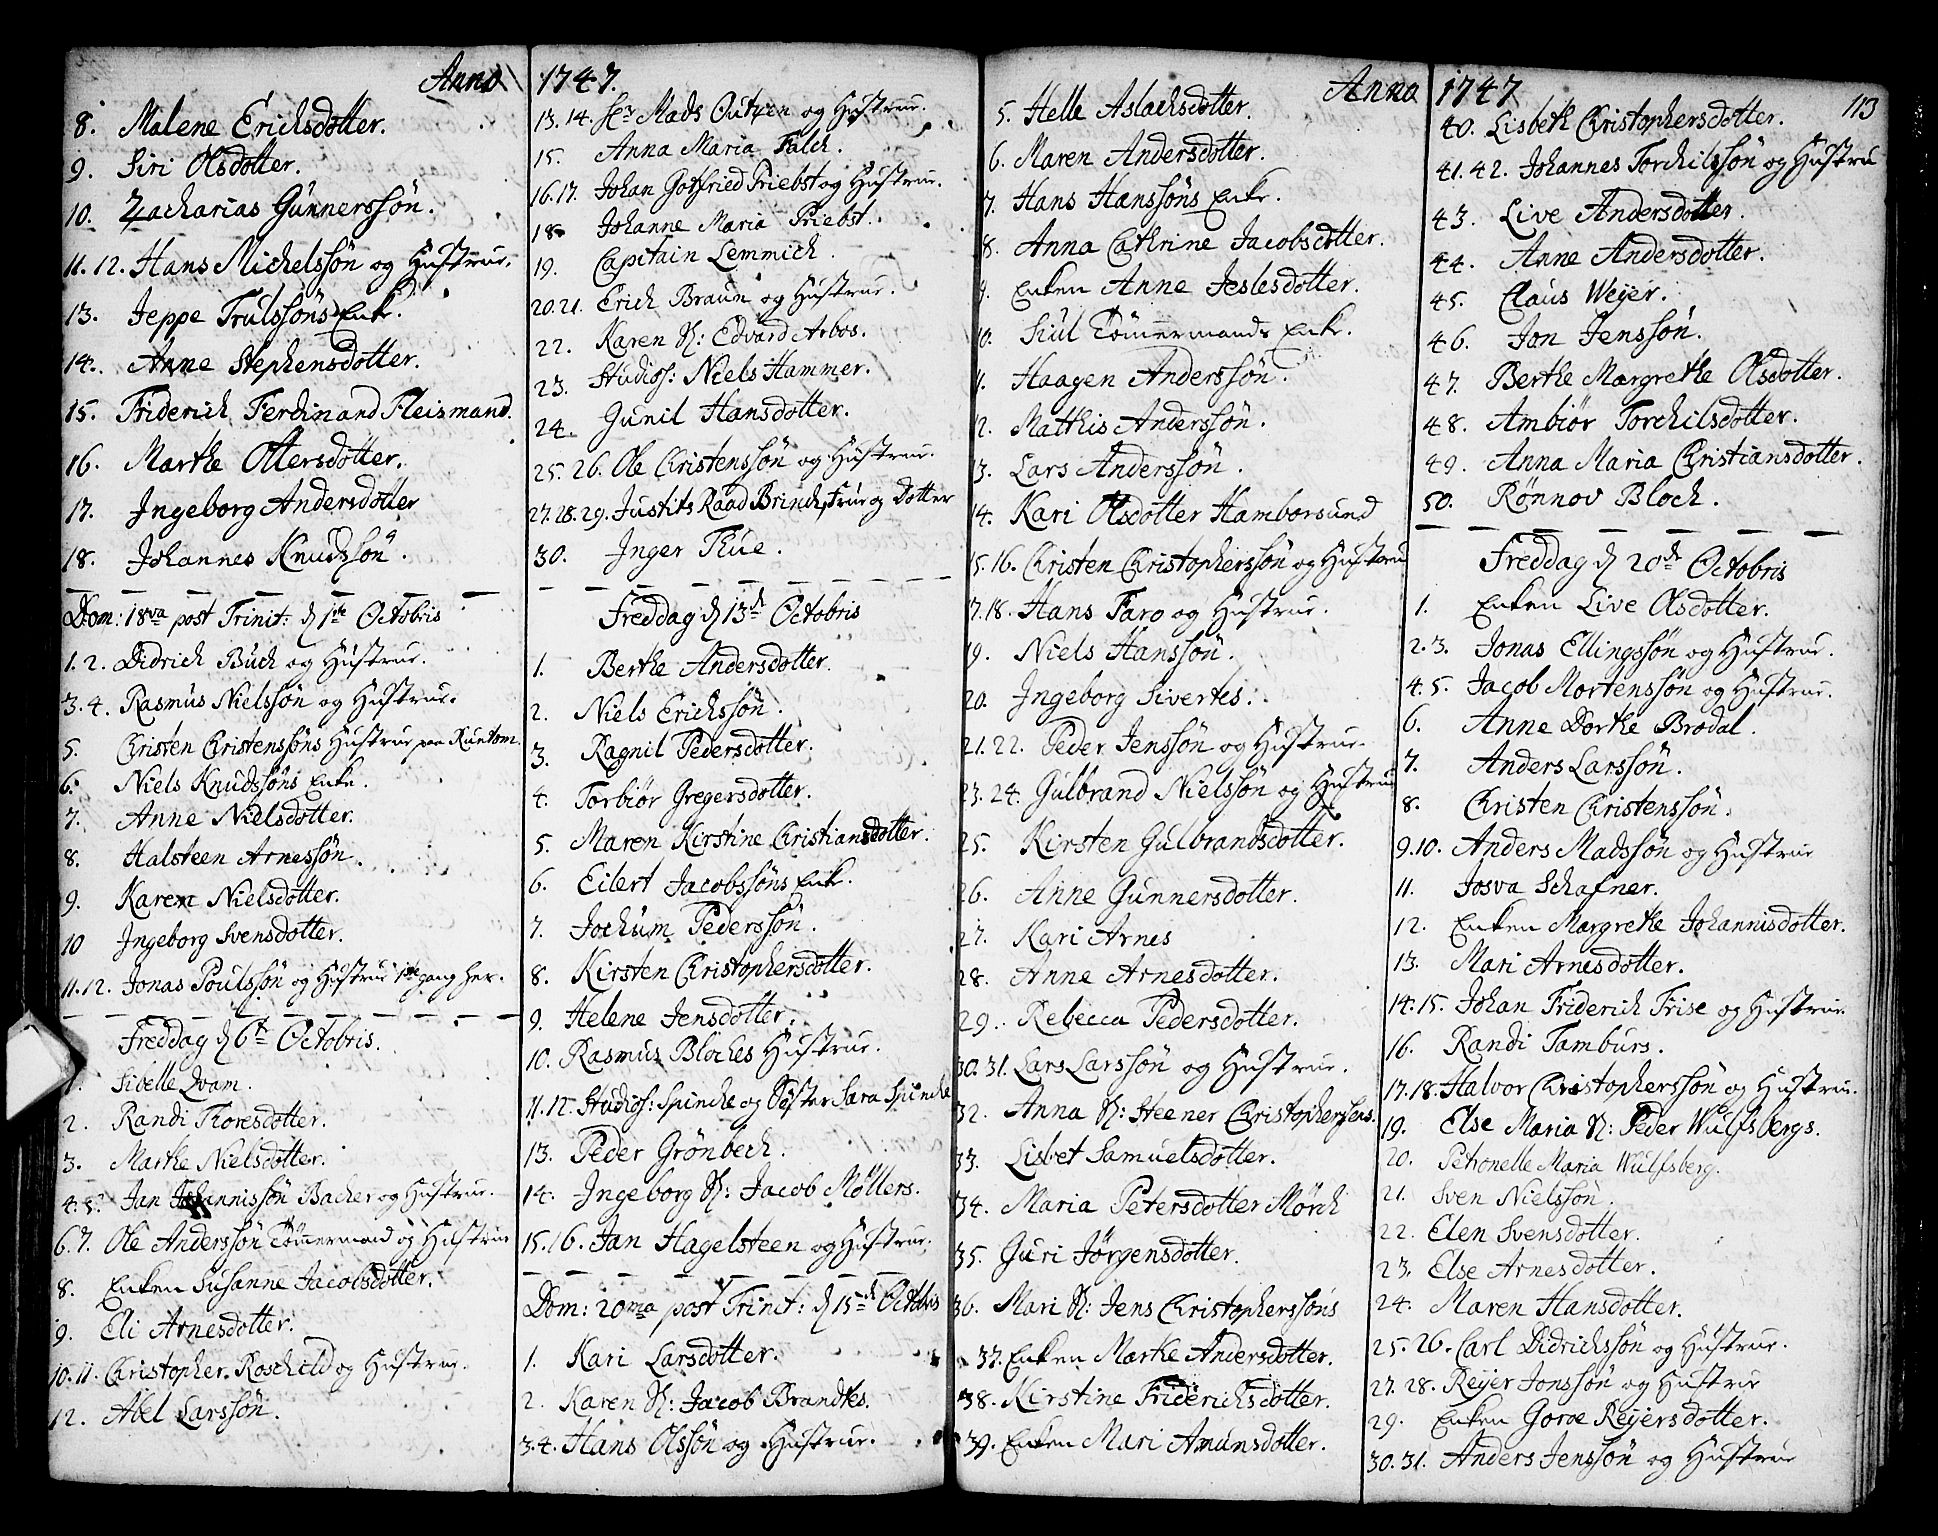 Anno 1747.
8. Malene Erichsdotter.
9. Siri Olsdotter.
10. Zacharias Gunnerssøn.
11. 12. Hans Michelssøn og Hustrue.
13. Jeppe Trulssøns Enke.
14. Anne Stephensdotter.
15. Friderich Ferdinand Fleismand.
16. Marthe Ottersdotter.
17. Ingeborg Andersdotter
18. Johannes Knudssøn.
Dom: 18va post Trinit: d 1ste Octobris
1. 2. Didrich Buch og Hustrue.
3. 4. Rasmus Nielssøn og Hustrue.
5. Christen Christenssøns Hustrue paa
6. Niels Knudssøns Enke.
7. Anne Nielsdotter.
8. Halsteen Arnessøn.
9. Karen Nielsdotter.
10 Ingeborg Svensdotter.
11. 12. Jonas Poulssøn og Hustrue 1ste gang her.
Freddag d 6te Octobris.
1. Sibelle Qvam.
2. Randi Thoresdotter.
3. Marthe Nielsdotter.
4. 5. Jan Johannissøn Bacher og Hustrue.
6. 7. Ole Anderssøn Tømmermand og Hustrue
8. Enken Susanne Jacobsdotter.
9. Eli Arnesdotter.
10. 11. Christopher Roschild og Hustrue.
12. Abel Larssøn.
13. 14. Sr Mads Outzen og Hustrue.
15. Anna Maria Falch.
16. 17. Johan Gotfried Priebst og Hustrue.
18. Johanne Maria Priebst.
19. Capitain Lemmich.
20. 21. Erich Braun og Hustrue.
22. Karen S: Edvard Arbos.
23. Studios: Niels Hammer.
24. Gunil Hansdotter.
25. 26. Ole Christenssøn og Hustrue.
27. 28. 29. Justits Raad Brinch, Frue og Dotter
30. Inger Thue.
Freddag d 13de Octobris
1. Berthe Andersdotter.
2. Niels Erichssøn.
3. Ragnil Pedersdotter.
4. Torbiør Gregersdotter.
5. Maren Kirstine Christiansdotter.
6. Eilert Jacobssøns Enke.
7. Jochum Pederssøn.
8. Kirsten Christophersdotter.
9. Helene Jensdotter.
10. Rasmus Bloches Hustrue.
11. 12. Studios: Spincke og Søster Sara Spincke
13. Peder Grønbech.
14. Ingeborg S: Jacob Møllers.
15. 16. Jan Hagelsteen og Hustrue.
Dom: 20ma post Trinit: d 15de Octobris
1. Kari Larsdotter.
2. Karen S: Jacob Brandtes.
3. 4. Hans Olssøn og Hustrue.
Anno 1747
113
5. Helle Aslachsdotter.
6. Maren Andersdotter.
7. Hans Hanssøns Enke.
8. Anna Cathrine Jacobsdotter.
9. Enken Anne Jeslesdotter.
10. Siul Tømmermands Enke.
11. Haagen Anderssøn.
12. Matthis Anderssøn.
13. Lars Anderssøn.
14. Kari Olsdotter Hamborsund
15. 16. Christen Christopherssøn og Hustrue
17. 18. Hans Faro og Hustrue.
19. Niels Hanssøn.
20. Ingeborg Sivertes.
21. 22. Peder Jenssøn og Hustrue.
23. 24. Gulbrand Nielssøn og Hustrue
25. Kirsten Gulbrandsdotter.
26. Anne Gunnersdotter.
27. Kari Arnes
28. Anne Arnesdotter.
29. Rebecca Pedersdotter.
30. 31. Lars Larssøn og Hustrue.
32. Anna S: Steener Christopherssøns.
33. Lisbet Samuelsdotter.
34. Maria Petersdotter Mørch
35. Guri Jørgensdotter.
36. Mari S: Jens Christopherssøns
37. Enken Marthe Andersdotter.
38. Kirstine Friderichsdotter.
39. Enken Mari Amunsdotter.
40. Lisbeth Christophersdotter.
41. 42. Johannes Torchilssøn og Hustrue
43. Live Andersdotter.
44. Anne Andersdotter.
45. Claus Weyer.
46. Jon Jenssøn.
47. Berthe Margrethe Olsdotter.
48. Ambiør Torchilsdotter.
49. Anna Maria Christiansdotter.
50. Rønnov Bloch.
Freddag d 20de Octobris
1. Enken Live Olsdotter.
2. 3. Jonas Ellingssøn og Hustrue.
4. 5. Jacob Mortenssøn og Hustrue.
6. Anne Dorthe Brodal.
7. Anders Larssøn.
8. Christen Christenssøn.
9. 10. Anders Madssøn og Hustrue
11. Josva Schafner.
12. Enken Margrethe Johannisdotter.
13. Mari Arnesdotter.
14. 15. Johan Friderich Frise og Hustrue.
16. Randi Tamburs.
17. 18. Halvor Christopherssøn og Hustrue.
19. Else Maria S: Peder Wulfsbergs.
20. Petronelle Maria Wulfsberg.
21. Sven Nielssøn.
22. Elen Svensdotter.
23. Else Arnesdotter.
24. Maren Hansdotter.
25. 26. Carl Didrichssøn og Hustrue.
27. 28. Reyer Jonssøn og Hustrue
29. Enken Goroe Reyersdotter.
30. 31. Anders Jenssøn og Hustrue